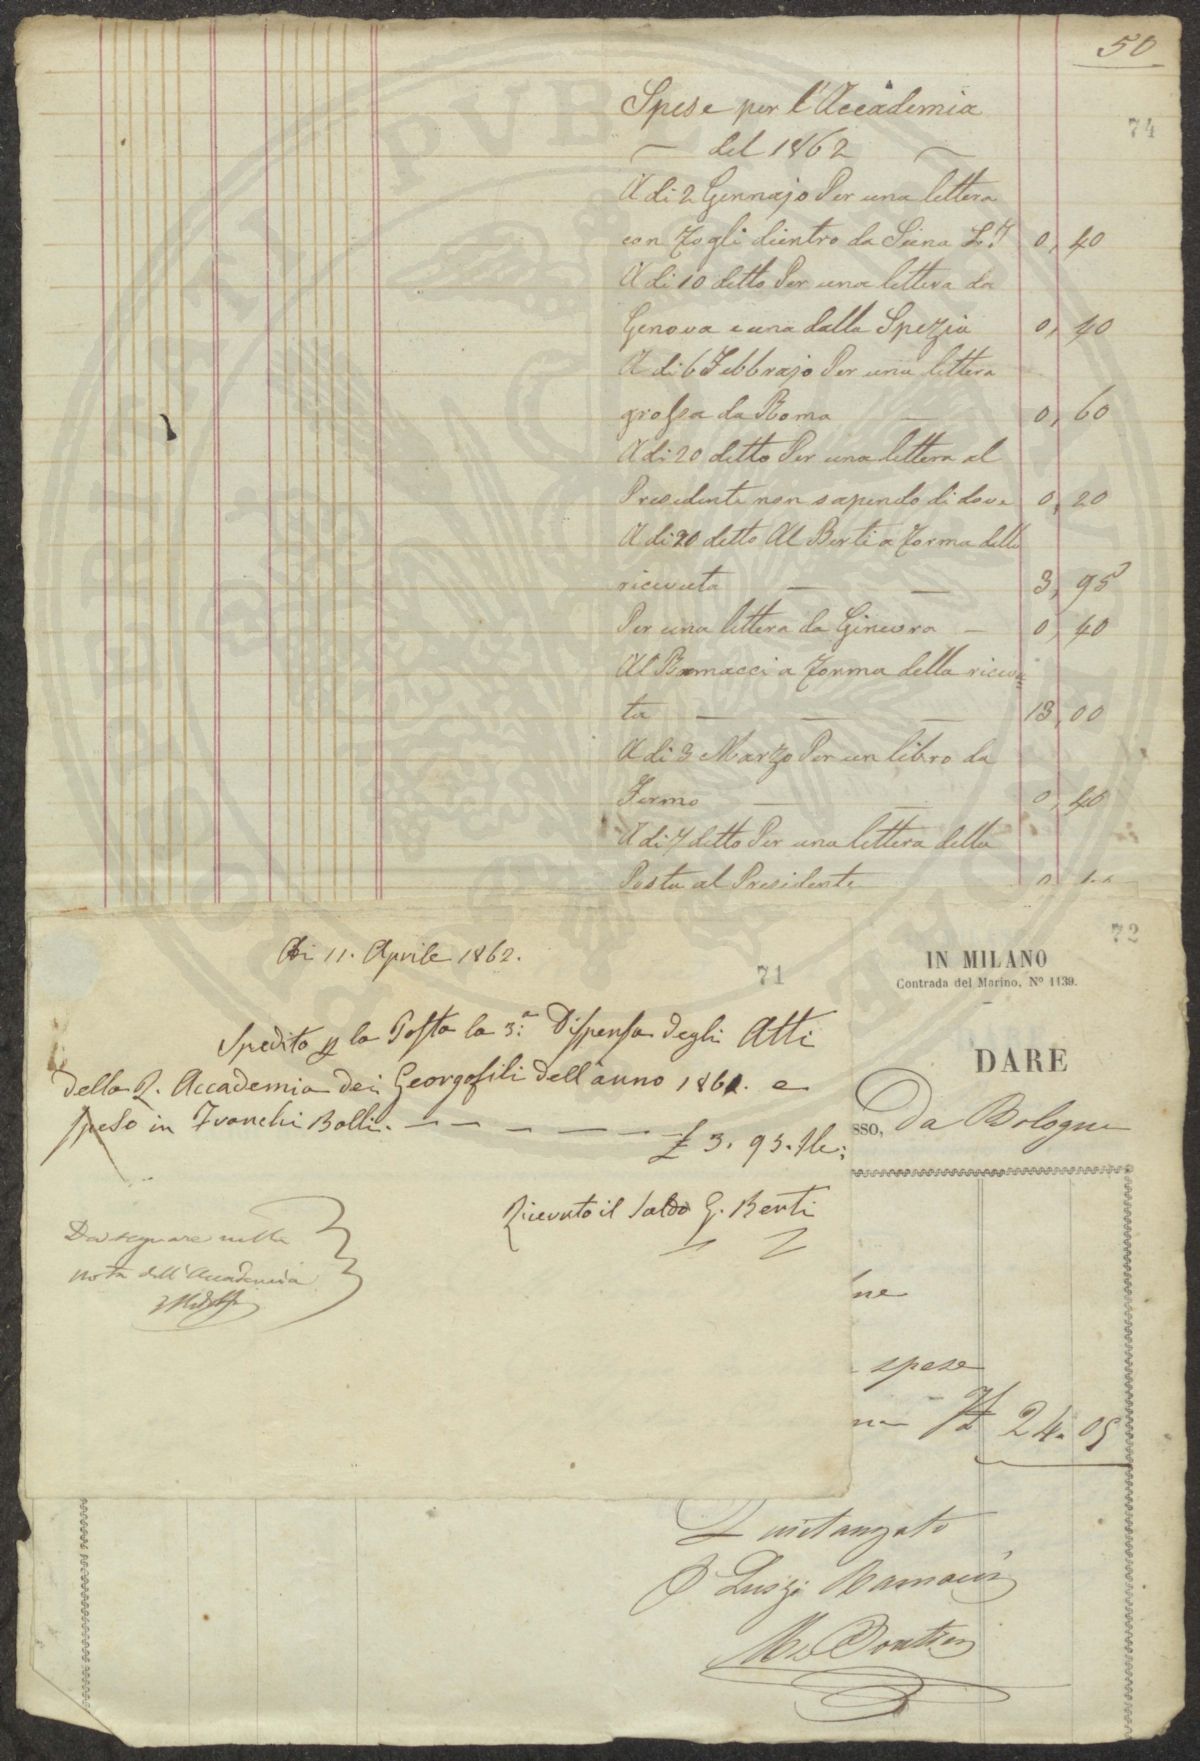 50
74
Spese per l'Accademia
del 1862
A di 2 Gennajo Per una lettera
con fogli dientro da Siena 0,40
A di 10 detto Per una lettera da
Genova e una dalla Spezia 0,40
A di 6 Febbrajo Per una lettera
grossa da Roma — 0,60
A di 20 detto Per una lettera al
Presidente non sapendo di dove 0,20
A di 20 detto Al Berti a forma della
ricevuta — — 3,95
Per una lettera da Ginevra — 0,40
Al Ramacci a forma della ricevu=
ta — — — 13,00
A di 3 Marzo Per un libro da
Fermo — — 0,40
A di 7 detto Per una lettera della
Posta al Presidente
Adi 11. Aprile 1862.
71
Spedito p la Posta la 3.a Dispensa degli Atti
della R. Accademia dei Georgofili dell'anno 1861. e
speso in Franchi Bolli. — — — — — £ 3. 95.
Ricevuto il Saldo G. Berti
Da segnare nella
nota dell'Accademia
72
IN MILANO
Contrada del Marino, Nº 1139.
DARE
sso, Da Bologna
ne
spese
24.05
Quietanzato
Luigi Ramacci